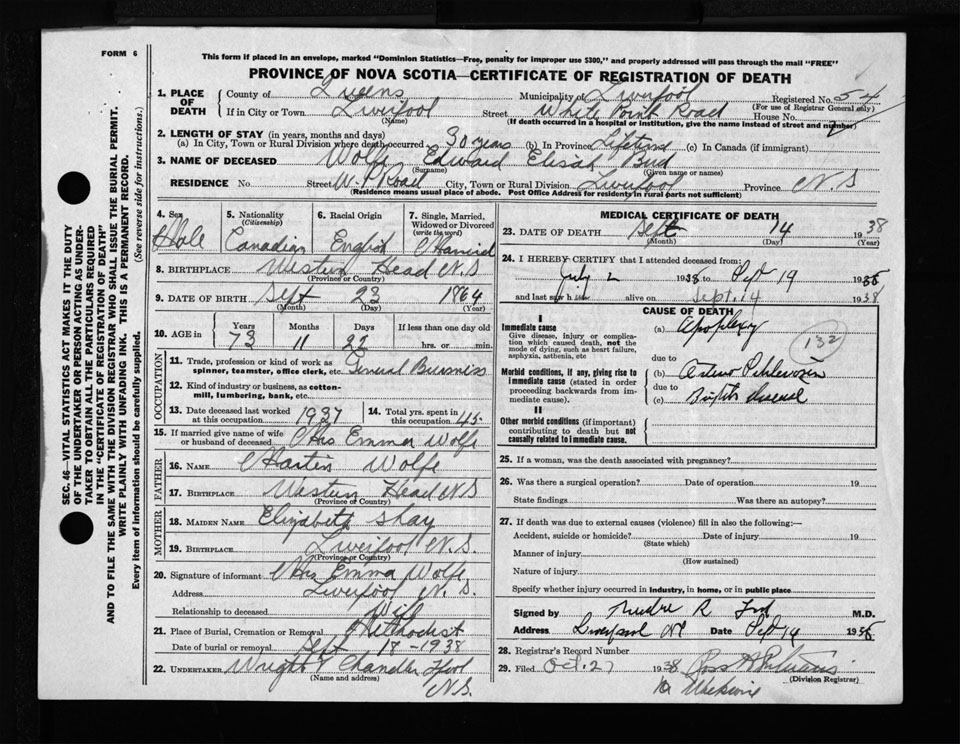 FORM 6
This form if placed in an envelope, marked "Dominion Statistics—Free, penalty for improper use $300," and properly addressed will pass through the mail "FREE"
PROVINCE OF NOVA SCOTIA—CERTIFICATE OF REGISTRATION OF DEATH
SEC. 46—VITAL STATISTICS ACT MAKES IT THE DUTY
OF THE UNDERTAKER OR PERSON ACTING AS UNDER-
TAKER TO OBTAIN ALL THE PARTICULARS REQUIRED
IN THE "CERTIFICATE OF REGISTRATION OF DEATH"
AND TO FILE THE SAME WITH THE DIVISION REGISTRAR WHO SHALL ISSUE THE BURIAL PERMIT.
WRITE PLAINLY WITH UNFADING INK. THIS IS A PERMANENT RECORD.
Every item of information should be carefully supplied. (See reverse side for instructions.)
1. PLACE OF DEATH
County of Queens Municipality of Liverpool Registered No. 54
(For use of Registrar General only)
If in City or Town Liverpool Street White Point Road House No.
(Name) (If death occurred in a hospital or institution, give the name instead of street and number)
2. LENGTH OF STAY (in years, months and days)
(a) In City, Town or Rural Division where death occurred 30 years (b) In Province Lifetime (c) In Canada (if immigrant)
3. NAME OF DECEASED Wolfe Edward Elisah Bud
(Surname) (Given name or names)
RESIDENCE No. Street W. P. Road City, Town or Rural Division Liverpool Province N.S
(Residence means usual place of abode. Post Office Address for residents in rural parts not sufficient)
4. Sex Male
5. Nationality (Citizenship) Canadian
6. Racial Origin English
7. Single, Married, Widowed or Divorced (write the word) Married
8. BIRTHPLACE Western Head N.S
(Province or Country)
9. DATE OF BIRTH Sept 23 1864
(Month) (Day) (Year)
10. AGE in Years 73 Months 11 Days 22 If less than one day old hrs. or min.
OCCUPATION
11. Trade, profession or kind of work as spinner, teamster, office clerk, etc. General Business
12. Kind of industry or business, as cotton-mill, lumbering, bank, etc.
13. Date deceased last worked at this occupation 1937 14. Total yrs. spent in this occupation 45
15. If married give name of wife or husband of deceased Mrs Emma Wolfe
FATHER
16. NAME Martin Wolfe
17. BIRTHPLACE Western Head N.S
(Province or Country)
MOTHER
18. MAIDEN NAME Elizabeth Shay
19. BIRTHPLACE Liverpool N.S.
(Province or Country)
20. Signature of informant Mrs Emma Wolfe
Address Liverpool N.S.
Relationship to deceased Wife
21. Place of Burial, Cremation or Removal Methodist
Date of burial or removal Sept 18-1938
22. UNDERTAKER Wright & Chandler Lpool
(Name and address) N.S.
MEDICAL CERTIFICATE OF DEATH
23. DATE OF DEATH Sept 14 1938
(Month) (Day) (Year)
24. I HEREBY CERTIFY that I attended deceased from:
July 2 1938 to Sept 19 19
and last saw him alive on Sept. 14 1938
CAUSE OF DEATH
I
Immediate cause
Give disease, injury or complication which caused death, not the mode of dying, such as heart failure, asphyxia, asthenia, etc
(a) Apoplexy
132
due to
Morbid conditions, if any, giving rise to immediate cause (stated in order proceeding backwards from immediate cause).
(b) Arterio
due to
(c) Bright's Disease
II
Other morbid conditions (if important) contributing to death but not causally related to immediate cause.
25. If a woman, was the death associated with pregnancy?
26. Was there a surgical operation? Date of operation 19
State findings Was there an autopsy?
27. If death was due to external causes (violence) fill in also the following:—
Accident, suicide or homicide? Date of injury 19
(State which)
Manner of injury
(How sustained)
Nature of injury
Specify whether injury occurred in industry, in home, or in public place
Signed by M.D.
Address Liverpool NS Date Sept 14 19
28. Registrar's Record Number
29. Filed Oct. 27 1938
(Division Registrar)